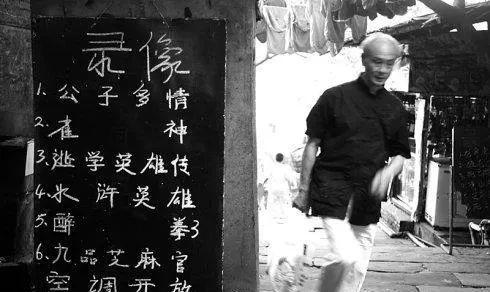 录像
1. 公子多情
2. 雀神
3. 逃学英雄传
4. 水浒英雄
5. 醉拳3
6. 九品芝麻官
空调开放